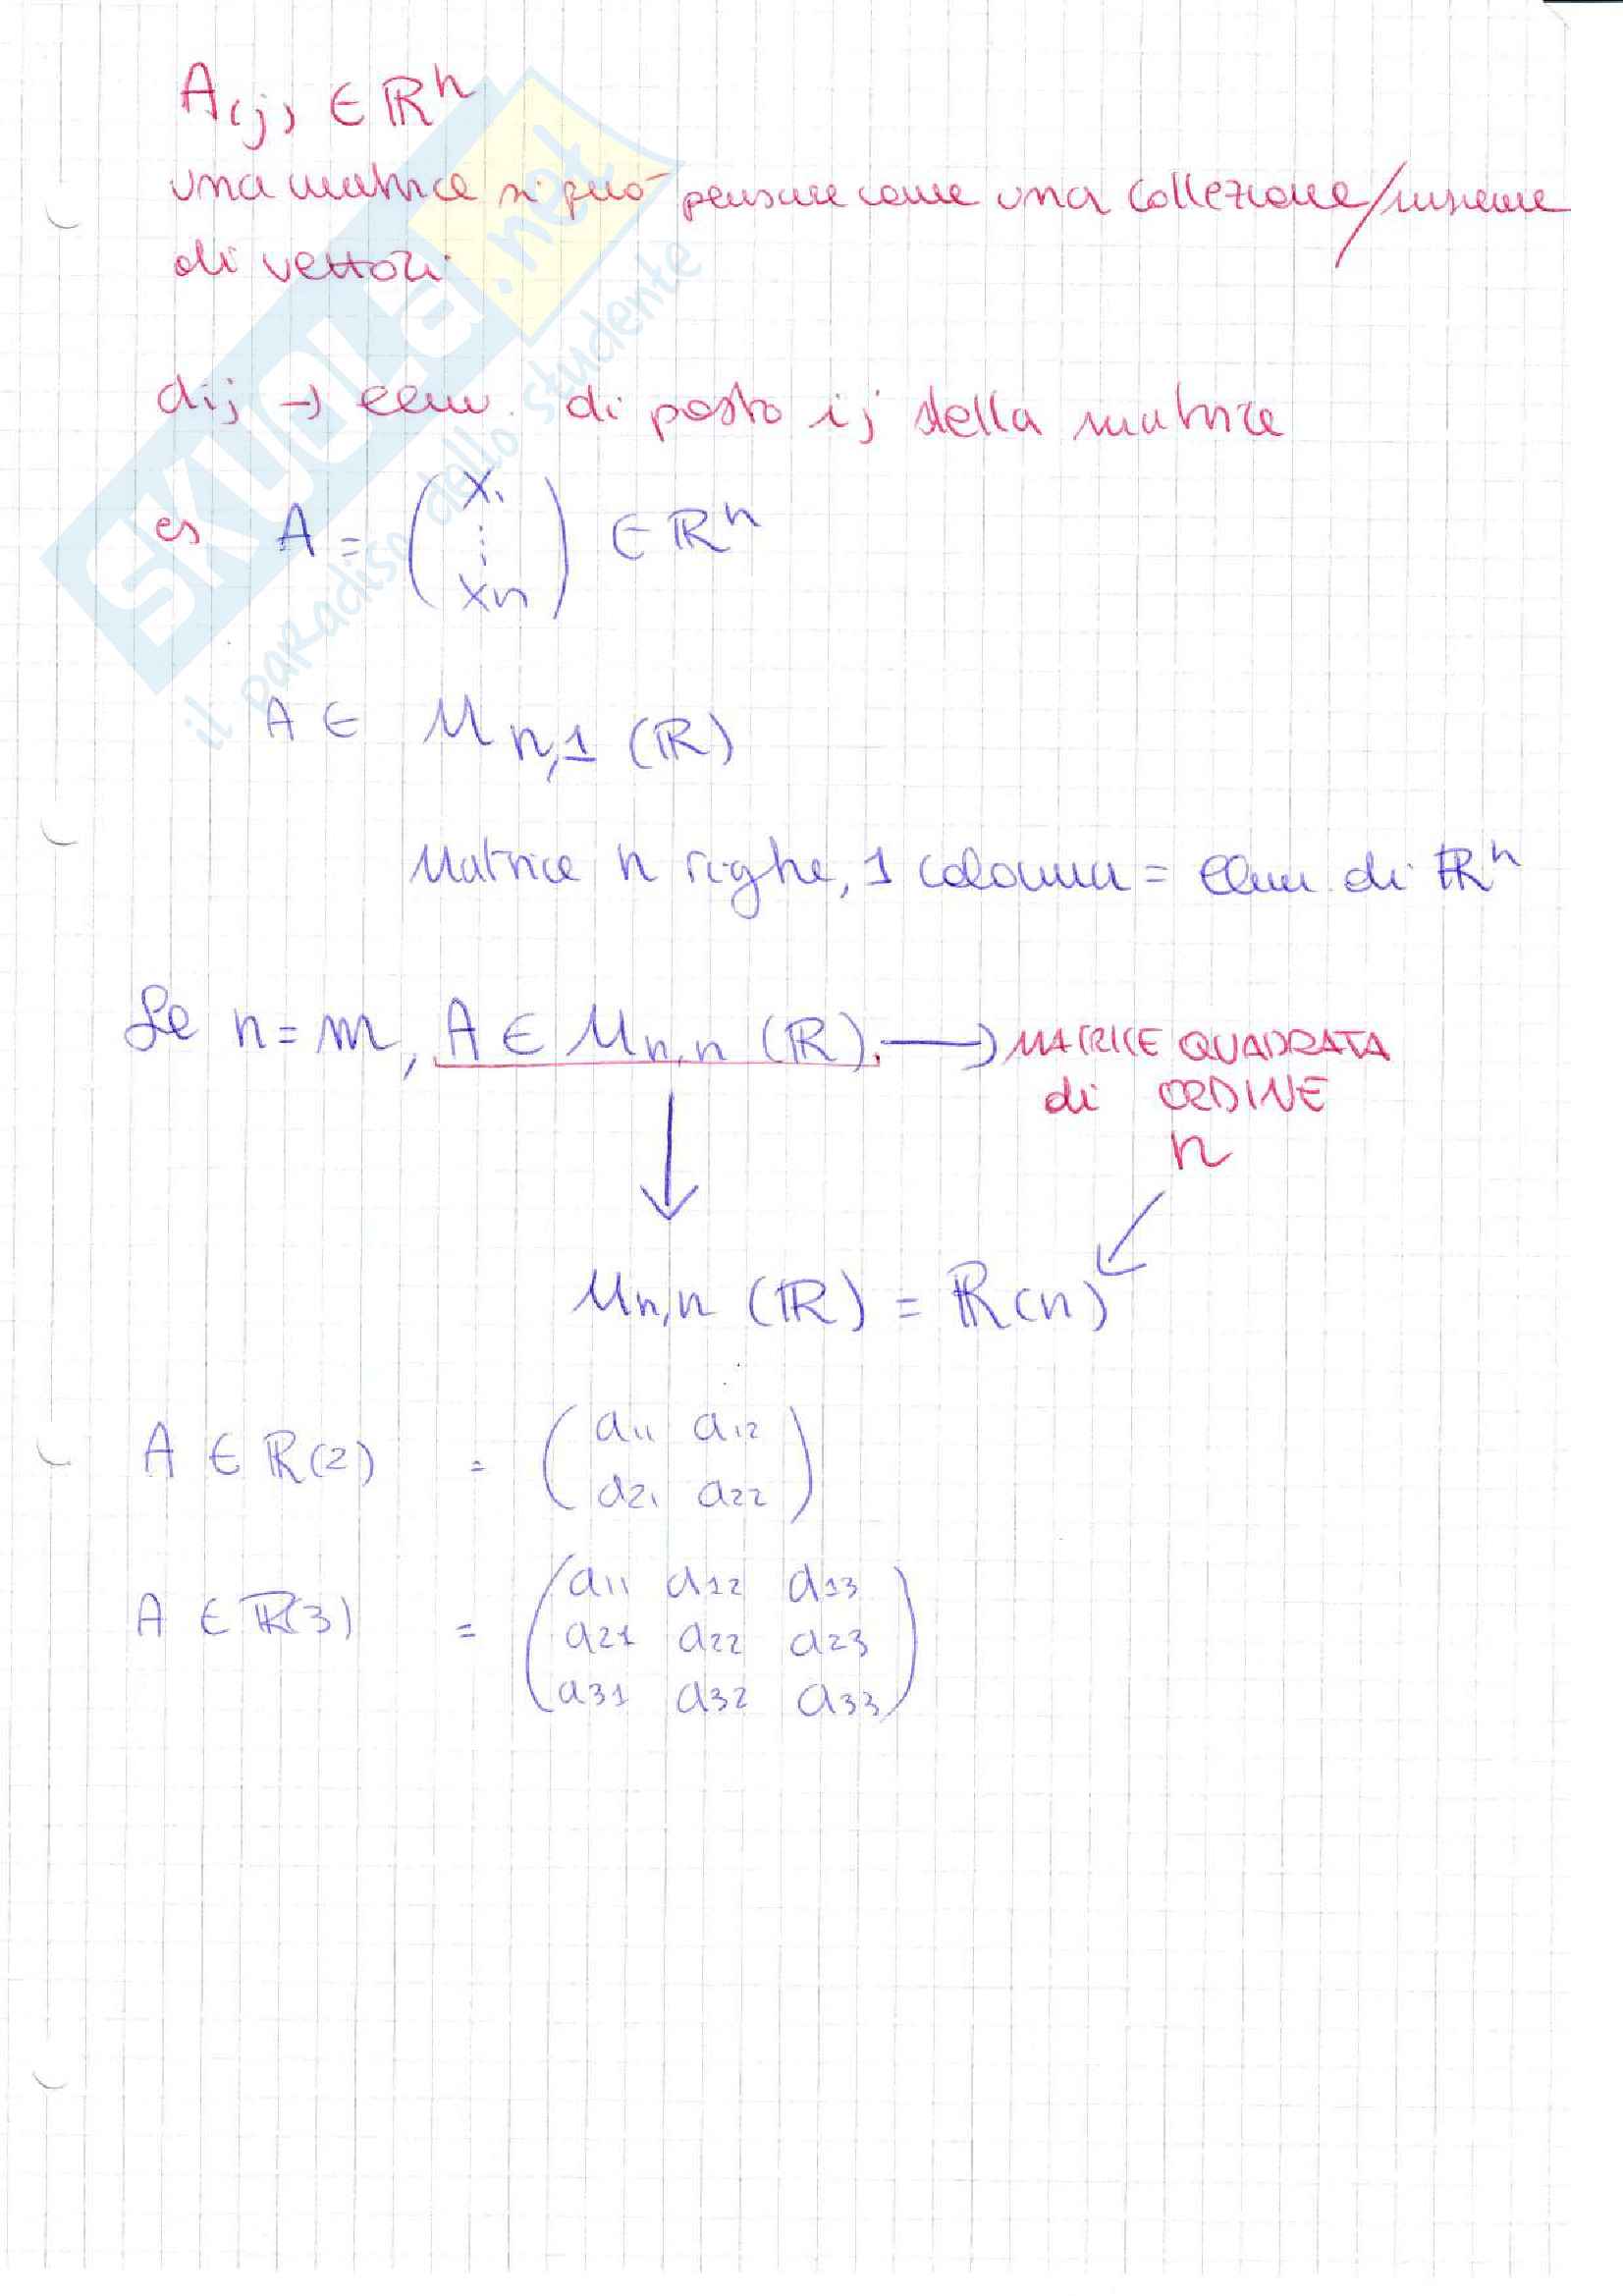 A(j) ∈ ℝⁿ
una matrice si può pensare come una collezione/insieme
di vettori
aij → elem. di posto ij della matrice
es A = (x₁ ⋮ xn) ∈ ℝⁿ
A ∈ Mn,1 (ℝ)
Matrice n righe, 1 colonna = elem. di ℝⁿ
Se n = m, A ∈ Mn,n (ℝ). → MATRICE QUADRATA
di ORDINE
n
Mn,n (ℝ) = ℝ(n)
A ∈ ℝ(2) = (a11 a12
a21 a22)
A ∈ ℝ(3) = (a11 a12 a13
a21 a22 a23
a31 a32 a33)
SKUOLA.net
il paradiso dello studente